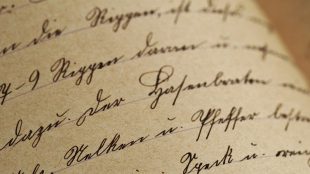 n die Rippen, ist dieses
7-9 Rippen daran u.
dazu. Der Hasenbraten
Nelken u. Pfeffer
Speck u.